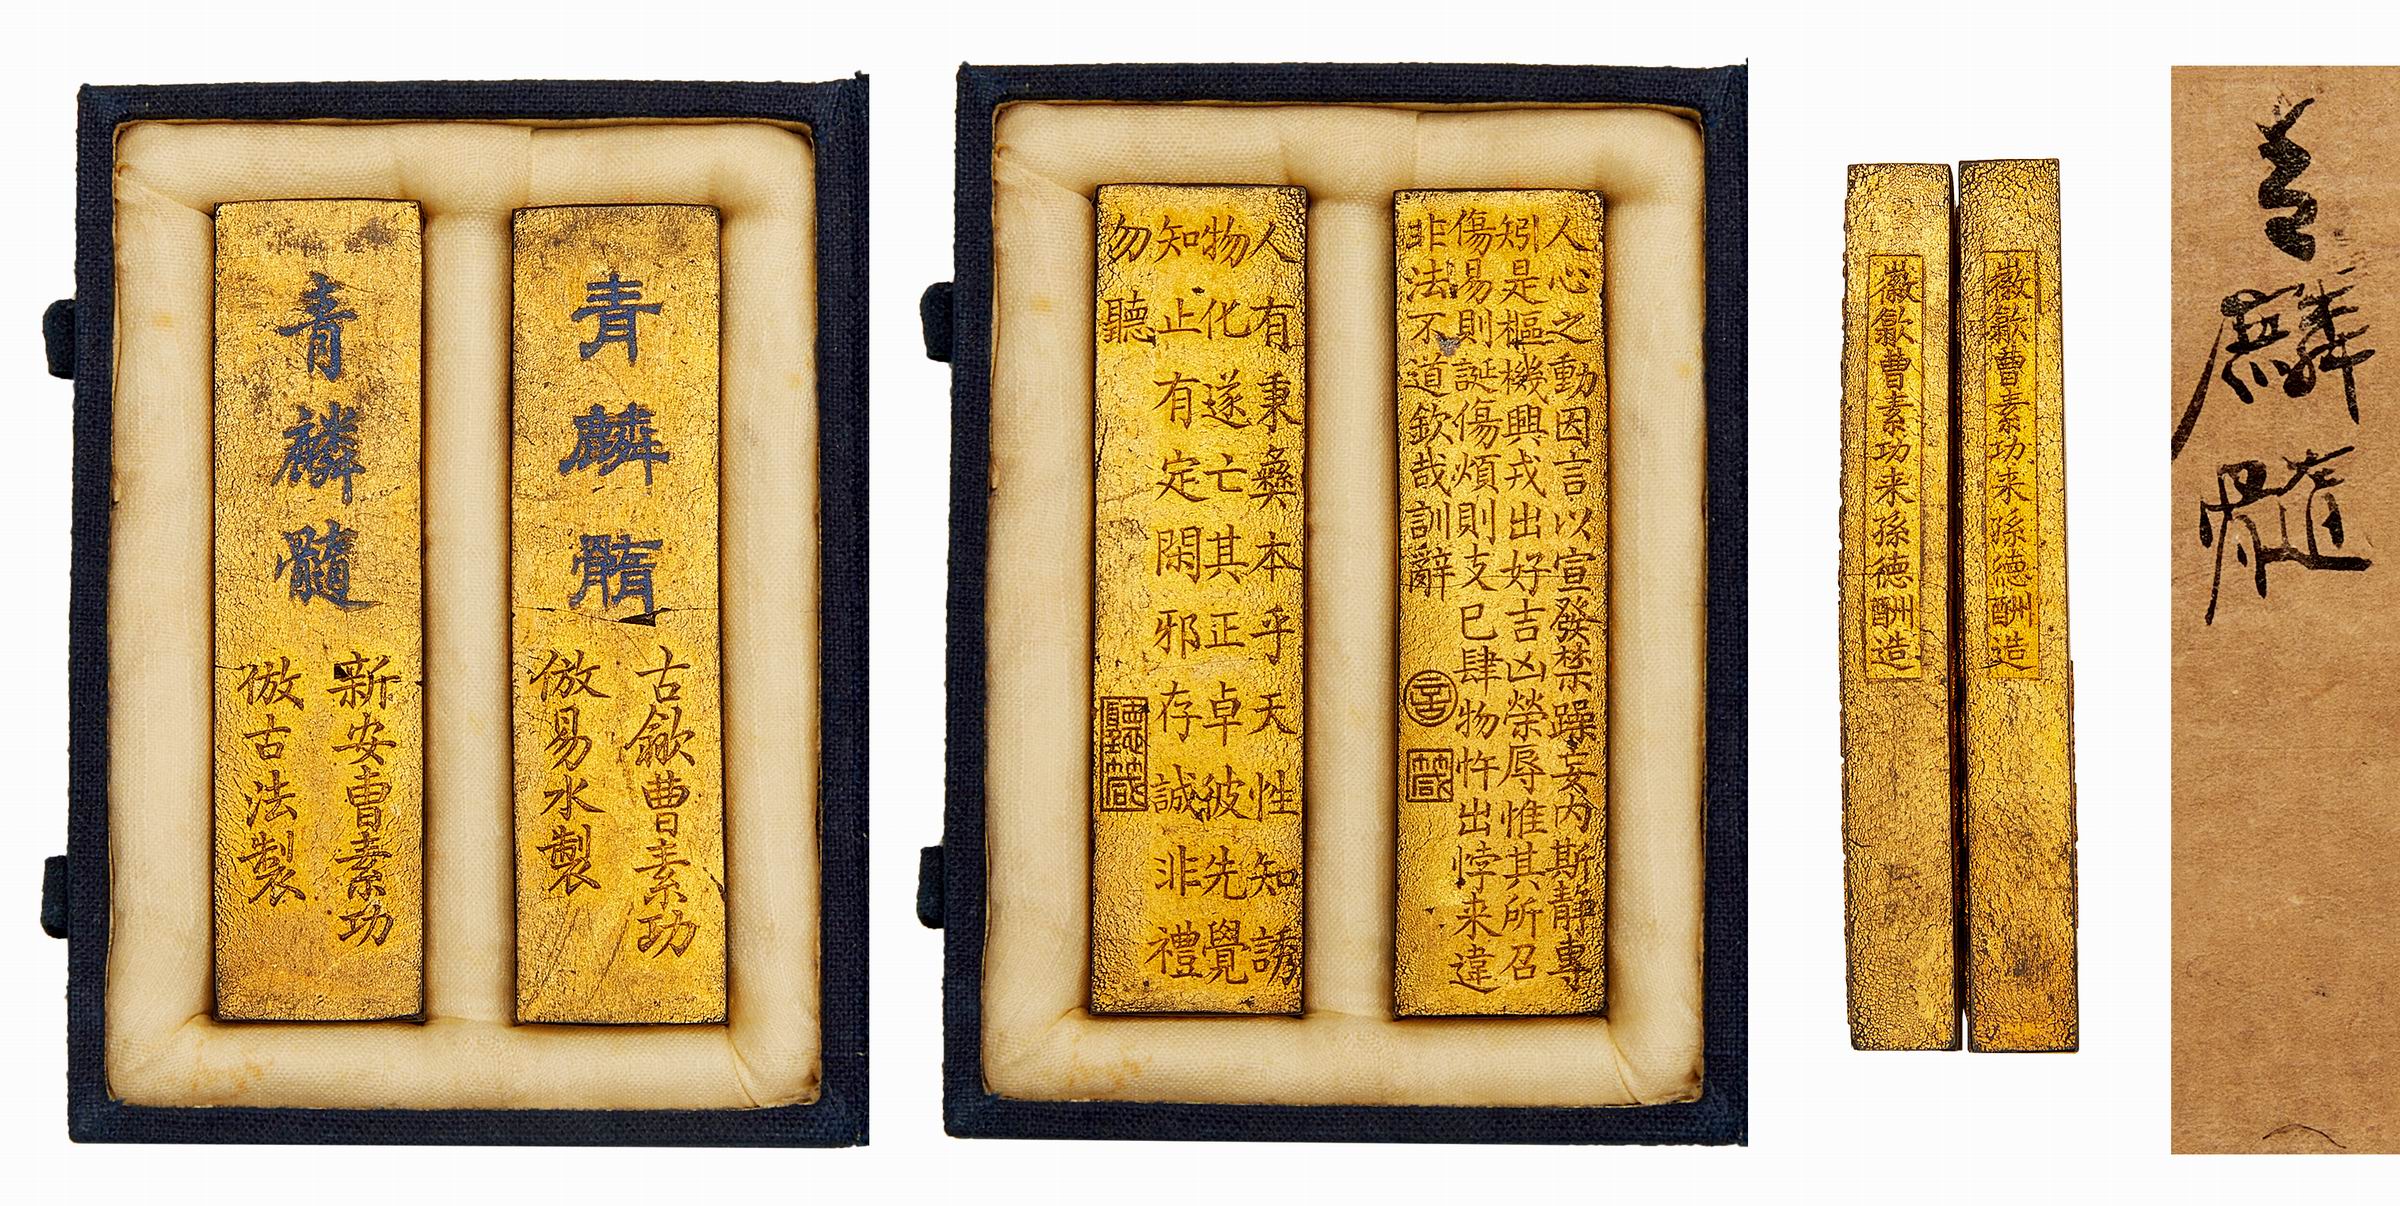 青麟髓
新安曹素功
倣古法製
青麟髓
古歙曹素功
倣易水製
人有秉彝本乎天性知誘
物化遂亡其正卓彼先覺
知止有定閑邪存誠非禮
勿聽
聽箴
人心之動因言以宣發禁躁妄內斯靜專
矧是樞機興戎出好吉凶榮辱惟其所召
傷易則誕傷煩則支巳肆物忤出悖来違
非法不道欽哉訓辭
言
箴
徽歙曹素功来孫德酬造
徽歙曹素功来孫德酬造
青麟髓